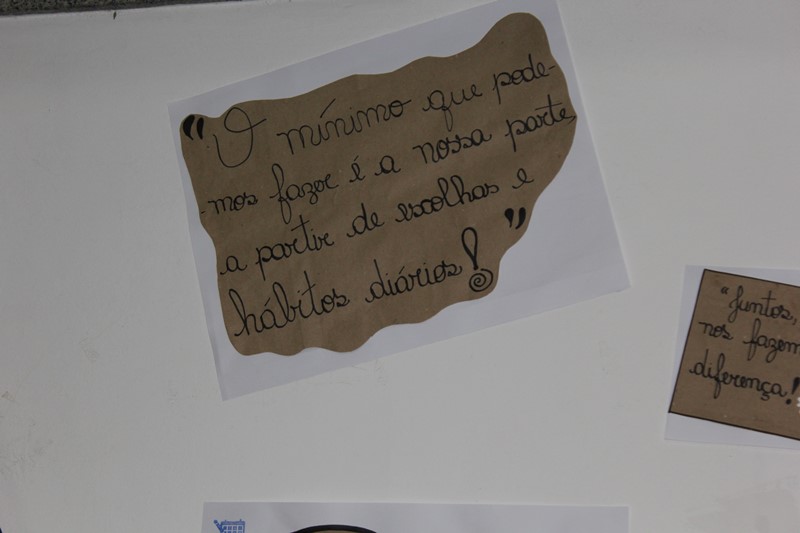 "O mínimo que pode-
-mos fazer é a nossa parte,
a partir de escolhas e
hábitos diários!"
"Juntos,
nos fazem
diferença!